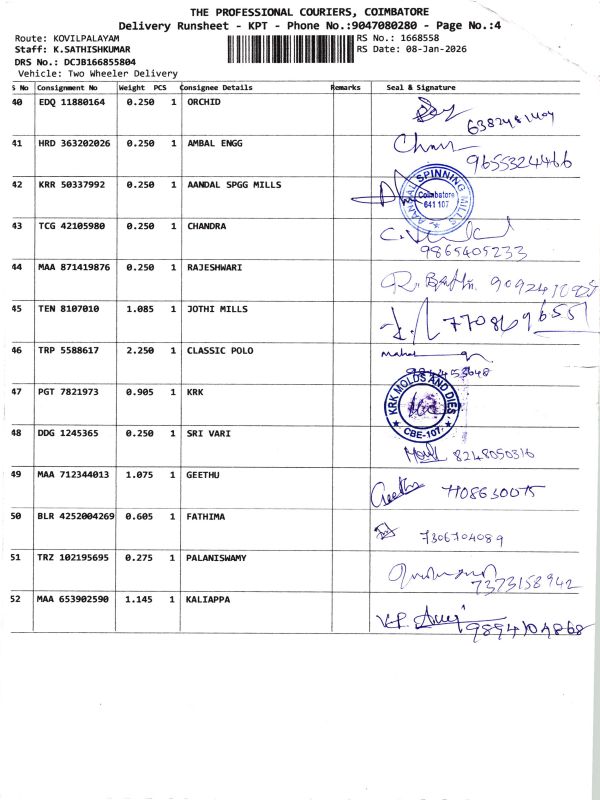 THE PROFESSIONAL COURIERS, COIMBATORE
Delivery Runsheet - KPT - Phone No.:9047080280 - Page No.:4
Route: KOVILPALAYAM
RS No.: 1668558
Staff: K.SATHISHKUMAR
RS Date: 08-Jan-2026
DRS No.: DCJB166855804
Vehicle: Two Wheeler Delivery
S No Consignment No Weight PCS Consignee Details Remarks Seal & Signature
40 EDQ 11880164 0.250 1 ORCHID
41 HRD 363202026 0.250 1 AMBAL ENGG
9655324466
42 KRR 50337992 0.250 1 AANDAL SPGG MILLS
AANDAL SPINNING MILLS
Coimbatore
641 107
43 TCG 42105980 0.250 1 CHANDRA
9865405233
44 MAA 871419876 0.250 1 RAJESHWARI
45 TEN 8107010 1.085 1 JOTHI MILLS
46 TRP 5588617 2.250 1 CLASSIC POLO
47 PGT 7821973 0.905 1 KRK
KRK MOLDS AND DIES
CBE-107.
48 DDG 1245365 0.250 1 SRI VARI
8248050316
49 MAA 712344013 1.075 1 GEETHU
Geetha
50 BLR 4252004269 0.605 1 FATHIMA
7306704089
51 TRZ 102195695 0.275 1 PALANISWAMY
7373158942
52 MAA 653902590 1.145 1 KALIAPPA